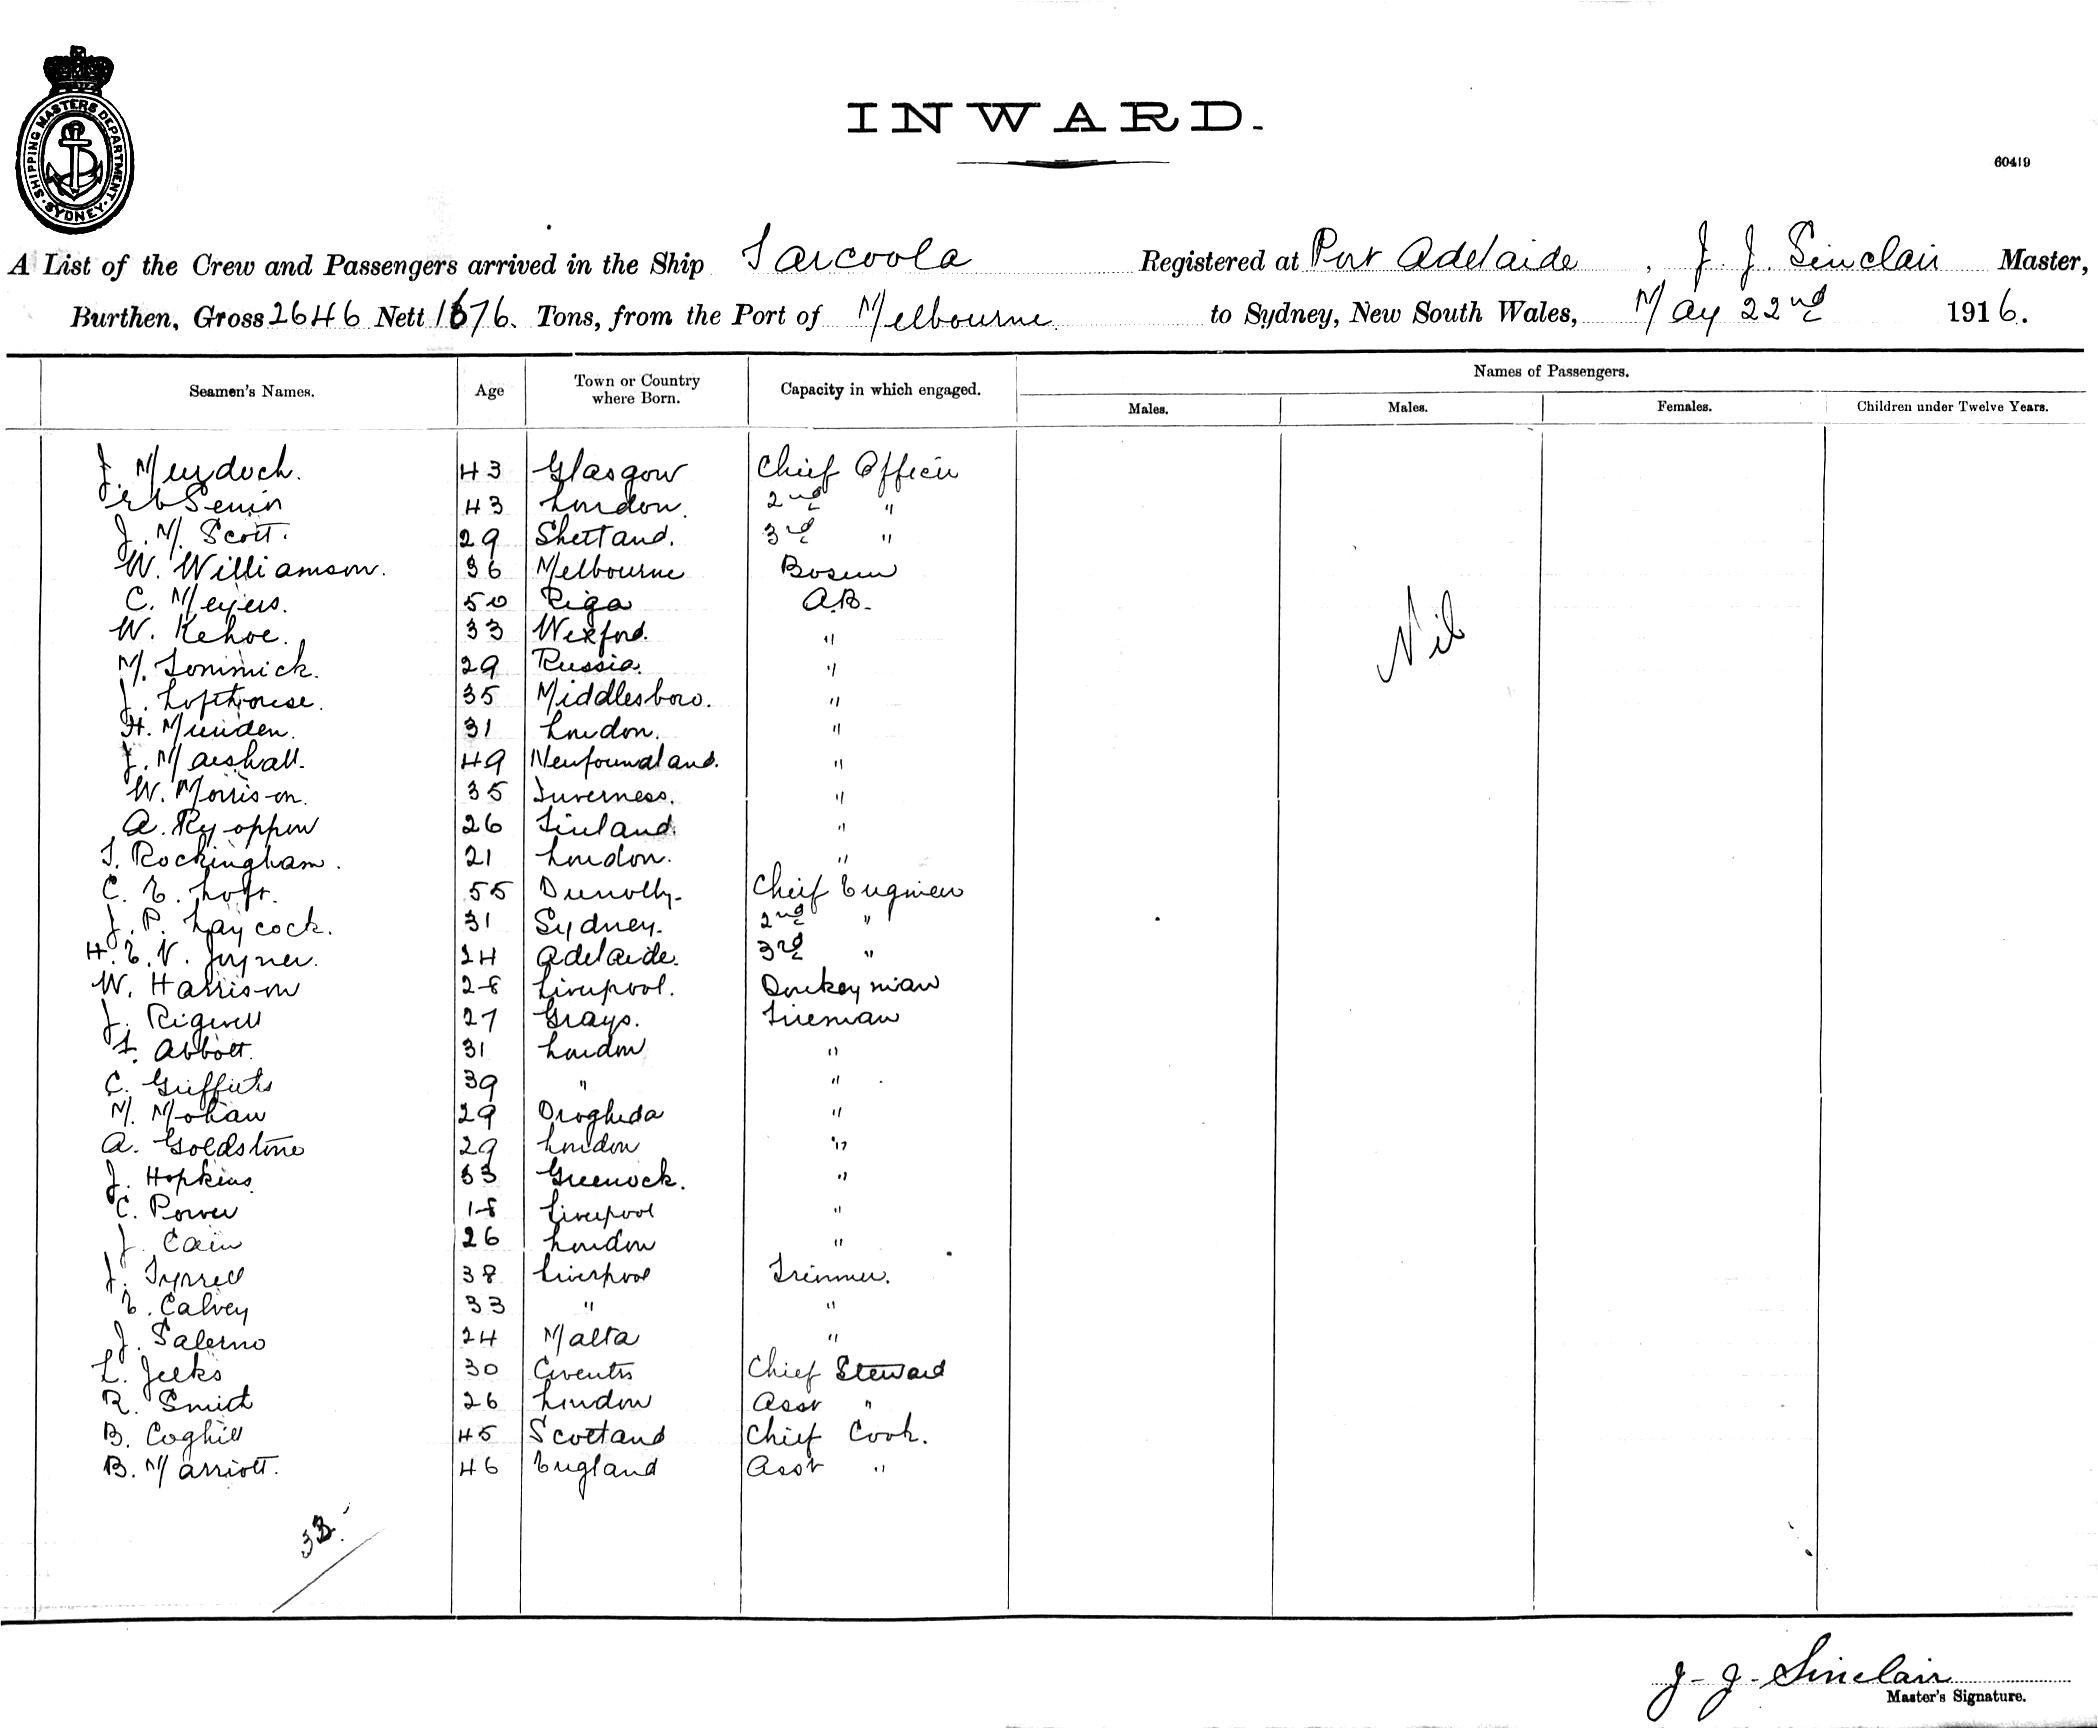 SHIPPING MASTERS DEPARTMENT. SYDNEY.
INWARD.
60419
A List of the Crew and Passengers arrived in the Ship Tarcoola Registered at Port Adelaide, J. J. Sinclair Master,
Burthen, Gross 2646 Nett 1676. Tons, from the Port of Melbourne to Sydney, New South Wales, May 22nd 1916.
Names of Passengers.
Seamen's Names. Age Town or Country where Born. Capacity in which engaged. Males. Males. Females. Children under Twelve Years.
J. Murdoch. 43 Glasgow Chief Officer
Senior 43 London. 2nd "
J. M. Scott. 29 Shetland. 3rd "
W. Williamson. 36 Melbourne Bosun
C. Meyers. 50 Riga A.B.
W. Kehoe. 33 Wexford. "
M. Tommick. 29 Russia. "
J. Lofthouse. 35 Middlesboro. "
H. Munden. 31 London. "
J. Marshall. 49 Newfoundland. "
W. Morrison. 35 Inverness. "
A. Ryoppon 26 Finland. "
T. Rockingham. 21 London. "
C. E. Loft. 55 Dunolly. Cheif Engineer
J. P. Laycock. 31 Sydney. 2nd "
H. E. V. Joyner. 24 Adelaide. 3rd "
W. Harrison 28 Liverpool. Donkeyman
J. Rigwell 27 Grays. Fireman
Abbott. 31 London "
C. Griffiths 39 " "
M. Mohan 29 Drogheda "
A. Goldstone 29 London "
J. Hopkins 53 Greenock. "
C. Power 18 Liverpool "
J. Cain 26 London "
J. Tyrrell 38 Liverpool Trimmer.
E. Calvey 33 " "
J. Salerno 24 Malta "
L. Jelks 30 Coventry Chief Steward
R. Smith 26 London Asst "
B. Coghill 45 Scotland Chief Cook.
B. Marriott. 46 England Asst "
Nil
33.
J. J. Sinclair
Master's Signature.